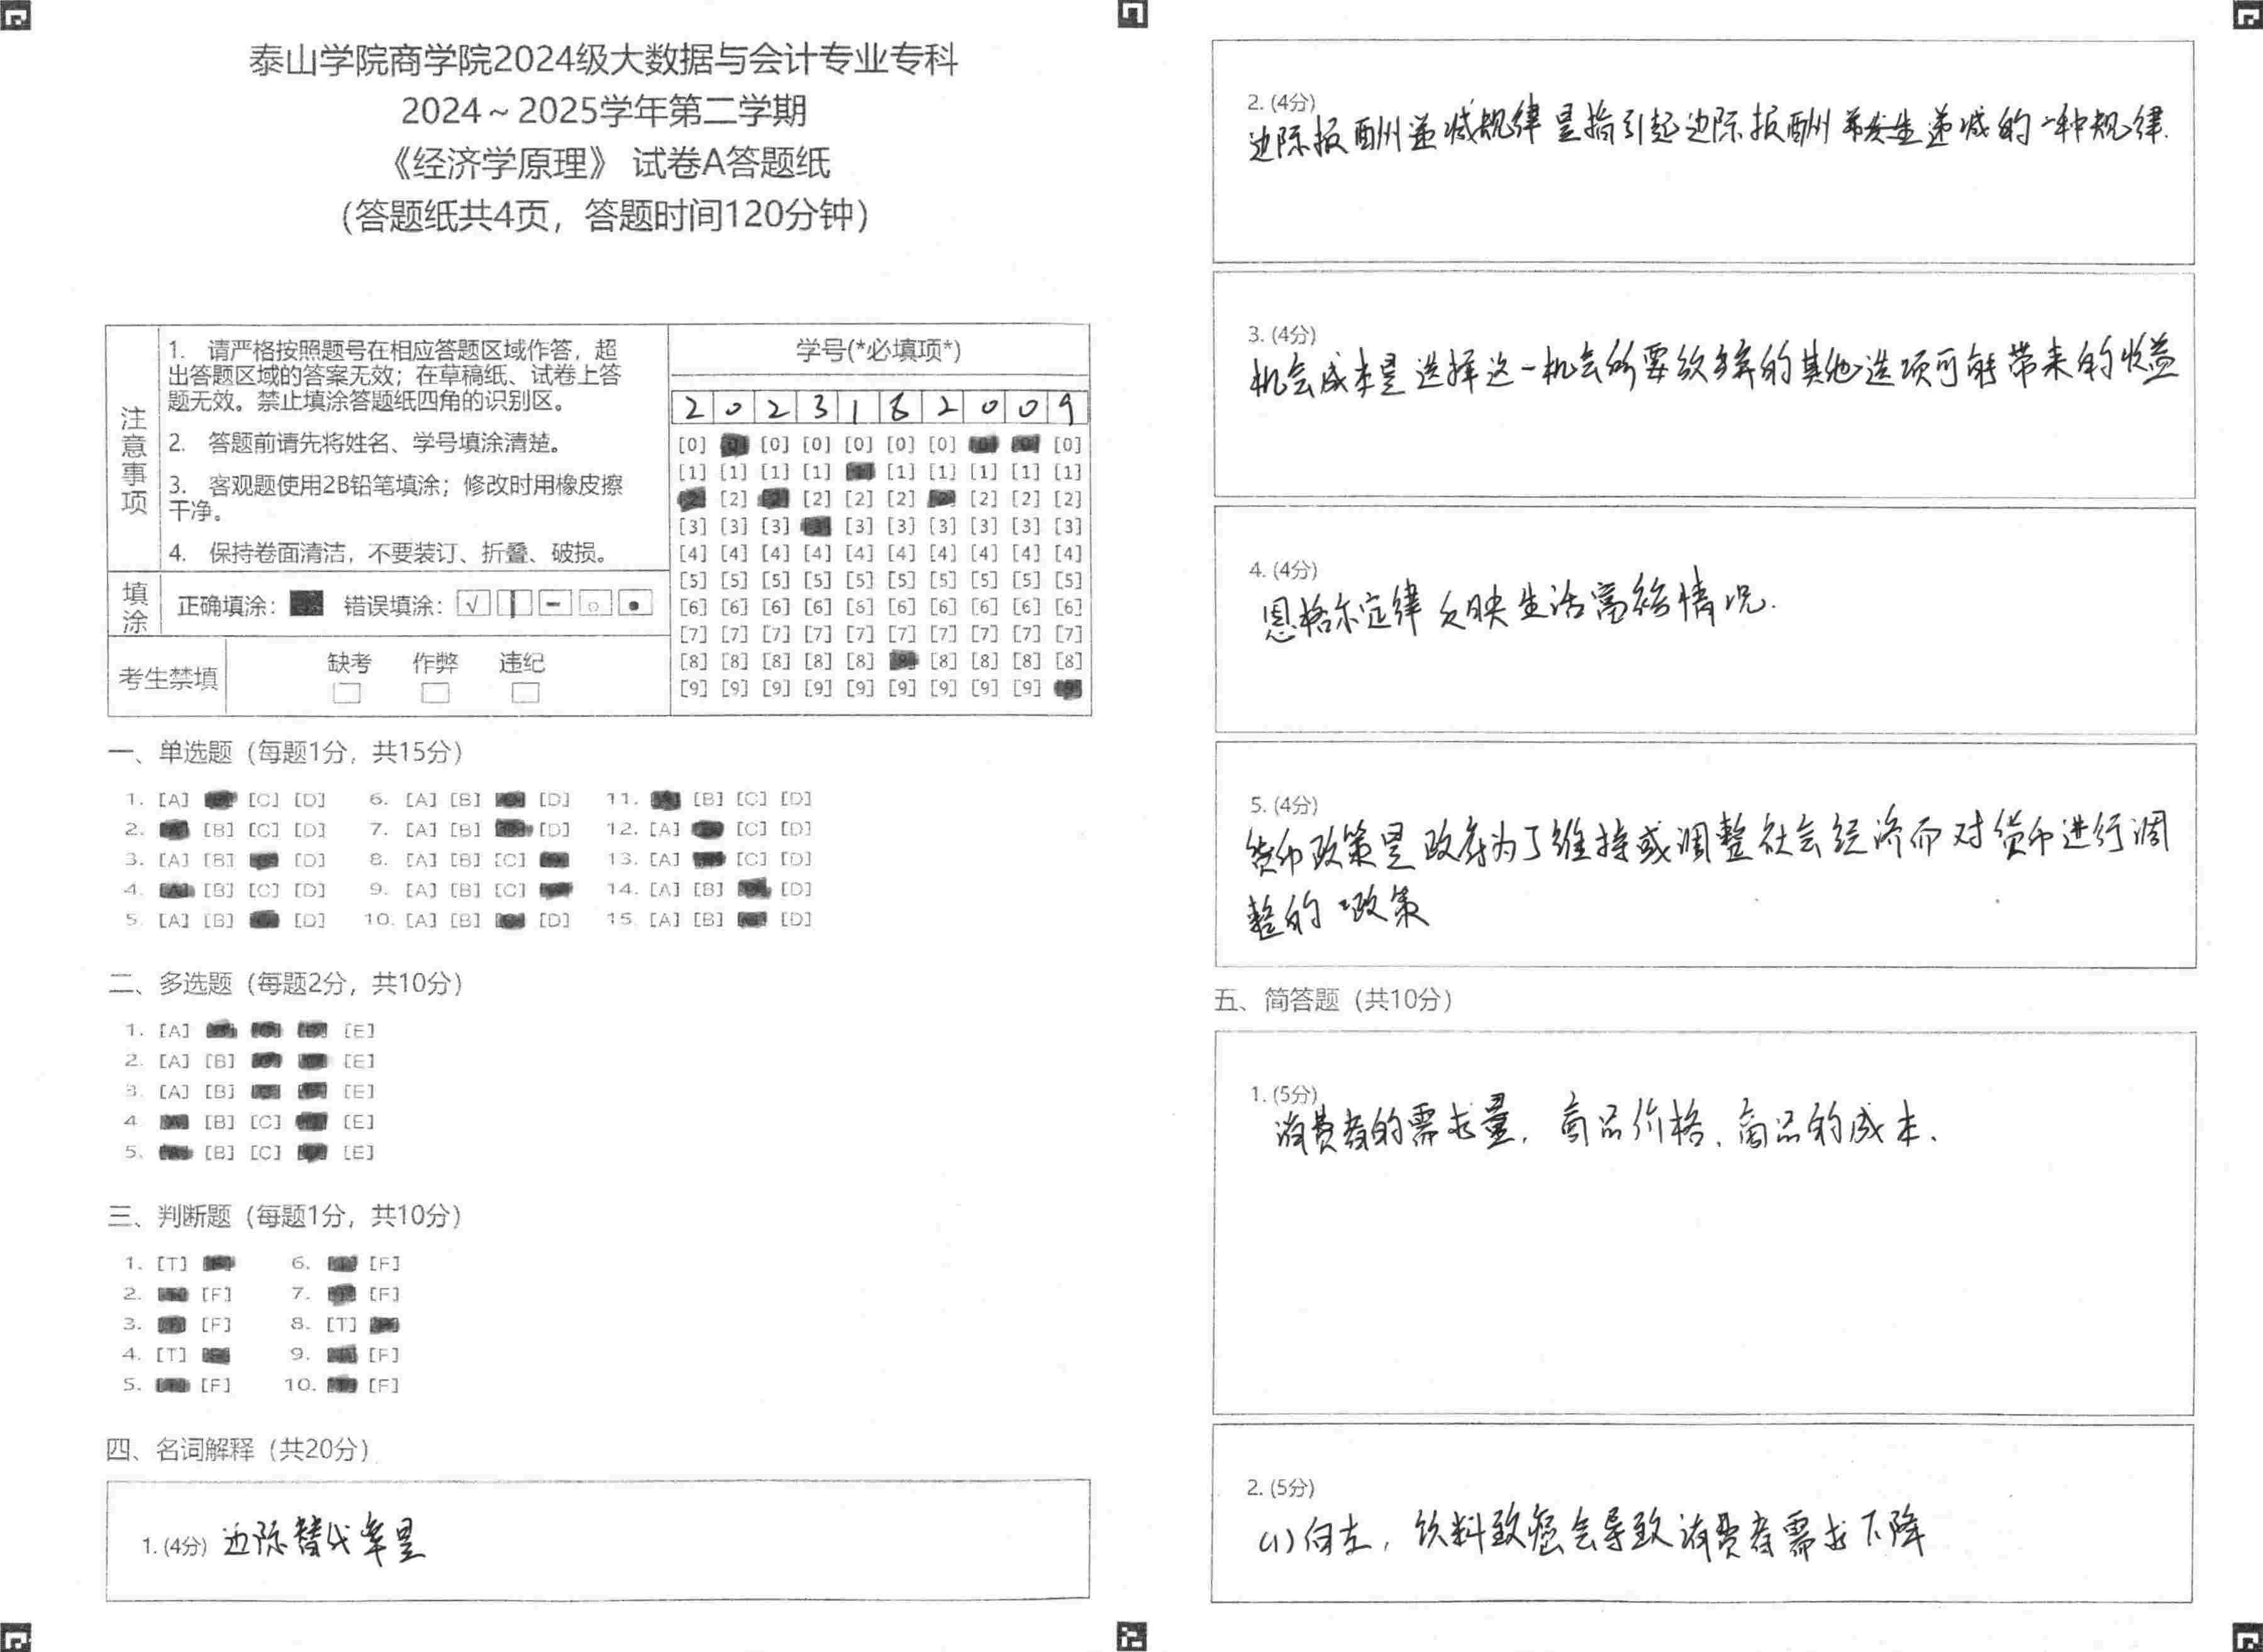 泰山学院商学院2024级大数据与会计专业专科
2024～2025学年第二学期
《经济学原理》 试卷A答题纸
（答题纸共4页，答题时间120分钟）
注意事项
1. 请严格按照题号在相应答题区域作答，超
出答题区域的答案无效；在草稿纸、试卷上答
题无效。禁止填涂答题纸四角的识别区。
2. 答题前请先将姓名、学号填涂清楚。
3. 客观题使用2B铅笔填涂；修改时用橡皮擦
干净。
4. 保持卷面清洁，不要装订、折叠、破损。
填涂
正确填涂： 错误填涂：
考生禁填
缺考 作弊 违纪
学号(*必填项*)
2 0 2 3 1 8 2 0 0 9
[0] [0] [0] [0] [0] [0] [0]
[1] [1] [1] [1] [1] [1] [1] [1] [1]
[2] [2] [2] [2] [2] [2] [2]
[3] [3] [3] [3] [3] [3] [3] [3] [3]
[4] [4] [4] [4] [4] [4] [4] [4] [4] [4]
[5] [5] [5] [5] [5] [5] [5] [5] [5] [5]
[6] [6] [6] [6] [6] [6] [6] [6] [6] [6]
[7] [7] [7] [7] [7] [7] [7] [7] [7] [7]
[8] [8] [8] [8] [8] [8] [8] [8] [8]
[9] [9] [9] [9] [9] [9] [9] [9] [9]
一、单选题（每题1分，共15分）
1. [A] [C] [D] 6. [A] [B] [D] 11. [B] [C] [D]
2. [B] [C] [D] 7. [A] [B] [D] 12. [A] [C] [D]
3. [A] [B] [D] 8. [A] [B] [C] 13. [A] [C] [D]
4. [B] [C] [D] 9. [A] [B] [C] 14. [A] [B] [D]
5. [A] [B] [D] 10. [A] [B] [D] 15. [A] [B] [D]
二、多选题（每题2分，共10分）
1. [A] [E]
2. [A] [B] [E]
3. [A] [B] [E]
4. [B] [C] [E]
5. [B] [C] [E]
三、判断题（每题1分，共10分）
1. [T] 6. [F]
2. [F] 7. [F]
3. [F] 8. [T]
4. [T] 9. [F]
5. [F] 10. [F]
四、名词解释（共20分）
1. (4分) 边际替代率是
2. (4分)
边际报酬递减规律是指引起边际报酬发生递减的一种规律.
3. (4分)
机会成本是选择这一机会所要放弃的其他选项可能带来的收益
4. (4分)
恩格尔定律反映生活富裕情况.
5. (4分)
货币政策是政府为了维持或调整社会经济而对货币进行调
整的政策
五、简答题（共10分）
1. (5分)
消费者的需求量，商品价格、商品的成本、
2. (5分)
(1)向左，饮料致癌会导致消费者需求下降